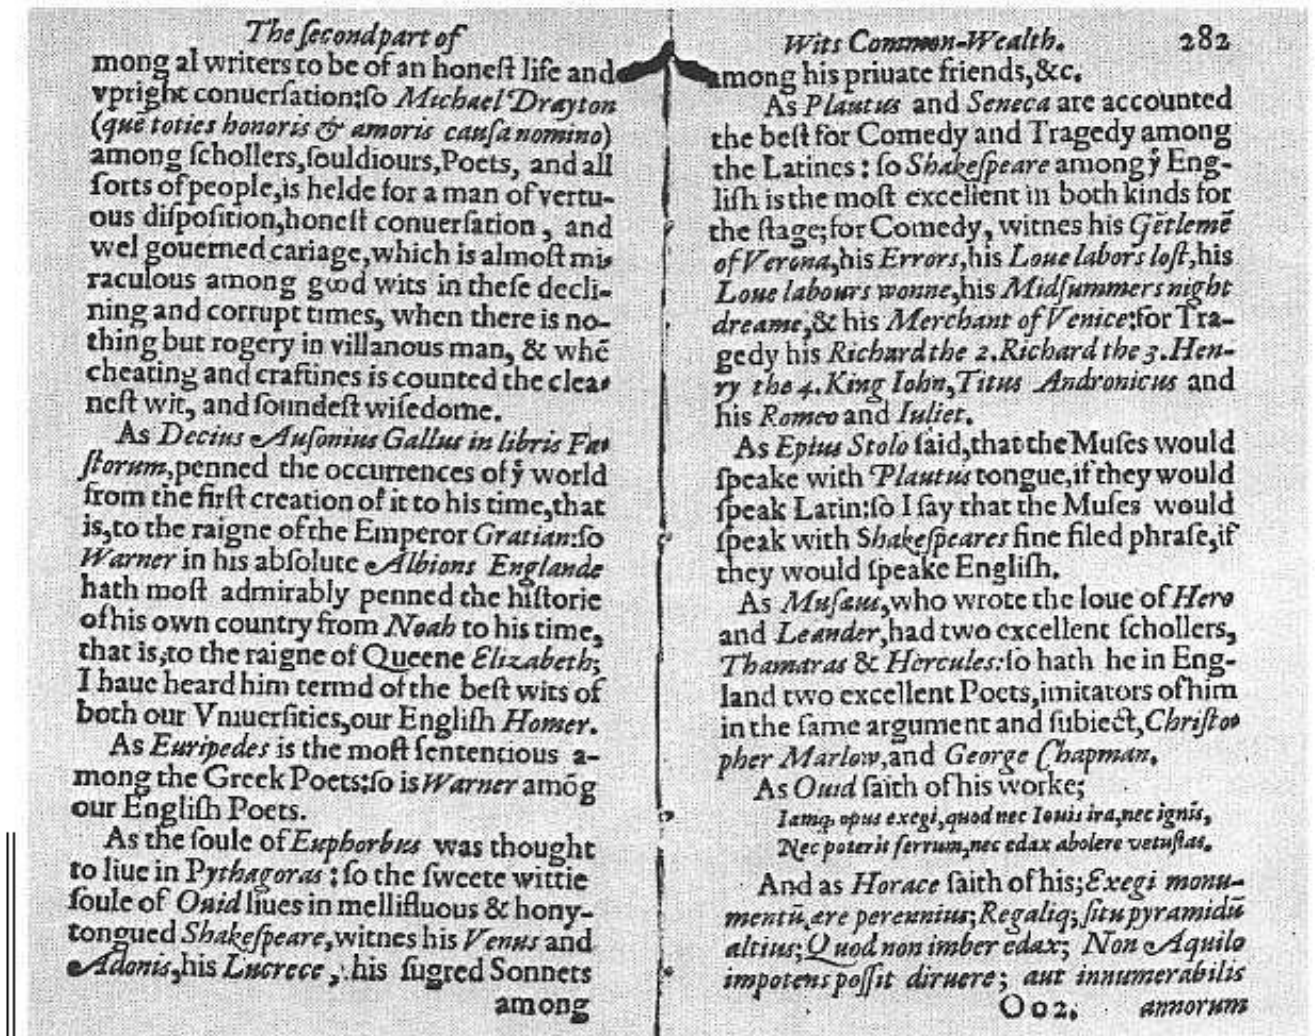 The ſecond part of
mong al writers to be of an honeſt life and
vpright conuerſation:ſo Michael Drayton
(quē toties honoris & amoris cauſa nomino)
among ſchollers,ſouldiours,Poets, and all
ſorts of people,is helde for a man of vertu-
ous diſpoſition,honeſt conuerſation, and
wel gouerned cariage,which is almoſt mi-
raculous among good wits in theſe decli-
ning and corrupt times, when there is no-
thing but rogery in villanous man, & whē
cheating and craftines is counted the clea-
neſt wit, and ſoundeſt wiſedome.
As Decius Auſonius Gallus in libris Fa-
ſtorum,penned the occurrences of yͤ world
from the firſt creation of it to his time,that
is,to the raigne of the Emperor Gratian:ſo
Warner in his abſolute Albions Englande
hath moſt admirably penned the hiſtorie
of his own country from Noah to his time,
that is,to the raigne of Queene Elizabeth;
I haue heard him termd of the beſt wits of
both our Vniuerſities,our Engliſh Homer.
As Euripedes is the moſt ſententious a-
mong the Greek Poets:ſo is Warner amōg
our Engliſh Poets.
As the ſoule of Euphorbus was thought
to liue in Pythagoras: ſo the ſweete wittie
ſoule of Ouid liues in mellifluous & hony-
tongued Shakeſpeare,witnes his Venus and
Adonis,his Lucrece, his ſugred Sonnets
among
Wits Common-Wealth. 282
among his priuate friends,&c.
As Plautus and Seneca are accounted
the beſt for Comedy and Tragedy among
the Latines: ſo Shakeſpeare among yͤ Eng-
liſh is the moſt excellent in both kinds for
the ſtage;for Comedy, witnes his Gētlemē
of Verona,his Errors,his Loue labors loſt,his
Loue labours wonne,his Midſummers night
dreame,& his Merchant of Venice:for Tra-
gedy his Richard the 2.Richard the 3.Hen-
ry the 4.King Iohn,Titus Andronicus and
his Romeo and Iuliet.
As Epius Stolo ſaid,that the Muſes would
ſpeake with Plautus tongue,if they would
ſpeak Latin:ſo I ſay that the Muſes would
ſpeak with Shakeſpeares fine filed phraſe,if
they would ſpeake Engliſh.
As Muſæus,who wrote the loue of Hero
and Leander,had two excellent ſchollers,
Thamaras & Hercules:ſo hath he in Eng-
land two excellent Poets,imitators of him
in the ſame argument and ſubiect,Chriſto-
pher Marlow,and George Chapman.
As Ouid ſaith of his worke;
Iamq, opus exegi,quod nec Iouis ira,nec ignis,
Nec poterit ferrum,nec edax abolere vetuſtas.
And as Horace ſaith of his;Exegi monu-
mentū ære perennius;Regaliq; ſitu pyramidū
altius;Quod non imber edax; Non Aquilo
impotens poſſit diruere; aut innumerabilis
Oo2. annorum